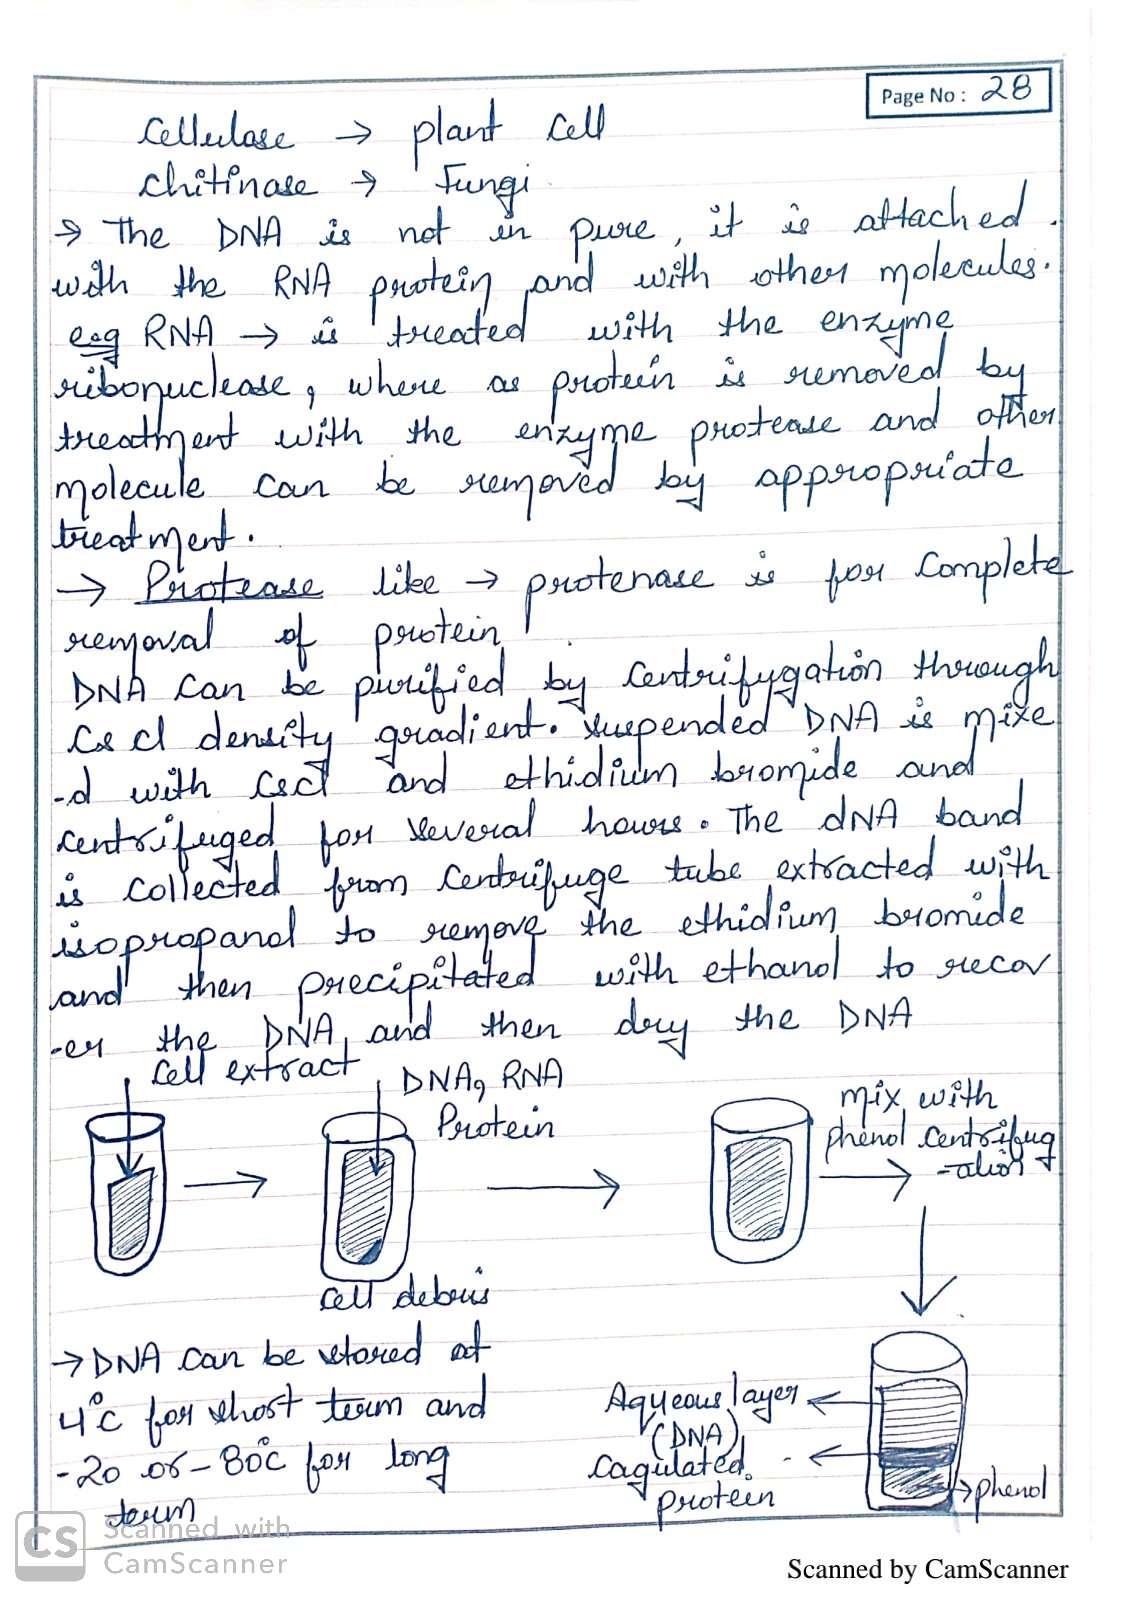 Page No : 28
Cellulase → plant cell
Chitinase → Fungi
→ The DNA is not in pure, it is attached
with the RNA protein and with other molecules.
e.g RNA → is treated with the enzyme
ribonuclease, where as protein is removed by
treatment with the enzyme protease and other
molecule can be removed by appropriate
treatment.
→ Protease like → protenase is for Complete
removal of protein
DNA can be purified by Centrifygation through
Cs cl density gradient. suspended DNA is mixe
-d with Cscl and ethidium bromide and
centrifuged for several hours. The dNA band
is collected from Centrifuge tube extracted with
isopropanol to remove the ethidium bromide
and then precipitated with ethanol to recov
-er the DNA, and then dry the DNA
Cell extract
DNA, RNA
Protein
mix with
phenol Centrifug
-ation
Cell debris
→ DNA can be stored at
4°c for short term and
-20 or -80°c for long
term
Aqueous layer
(DNA)
Cagulated
protein
phenol
CS Scanned with
CamScanner
Scanned by CamScanner